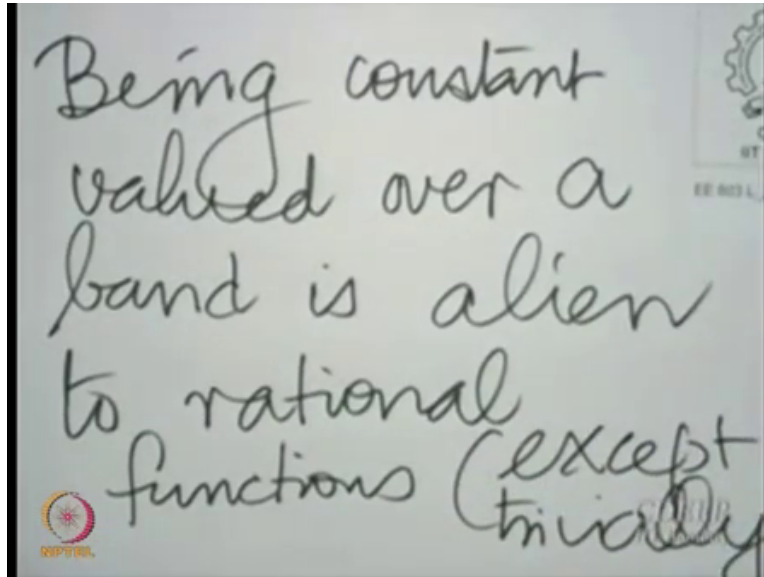 Being constant
valued over a
band is alien
to rational
functions (except
trivially
NPTEL
IIT